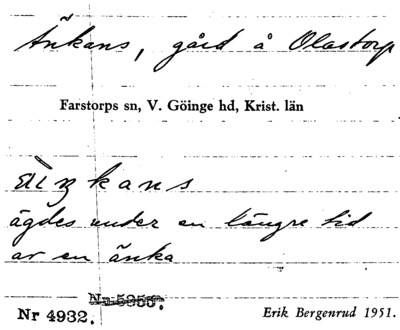 Änkans, gård å Olastorp
Farstorps sn, V. Göinge hd, Krist. län
kans
ägdes under en längre tid
av en änka
Nr 5355.
Nr 4932.
Erik Bergenrud 1951.